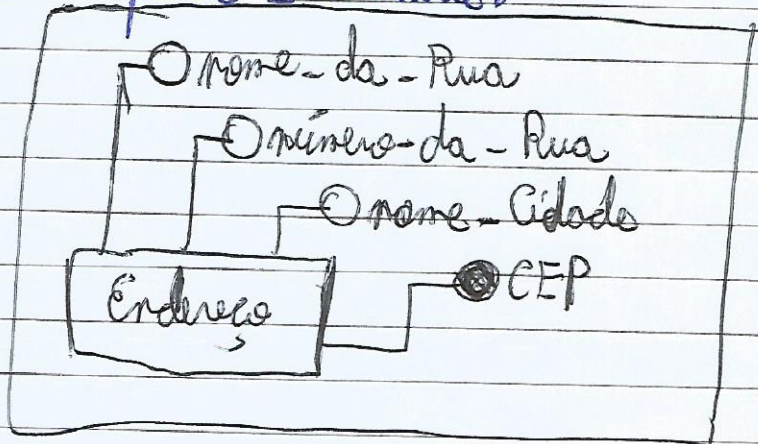 nome-da-Rua
número-da-Rua
nome-Cidade
CEP
Endereço